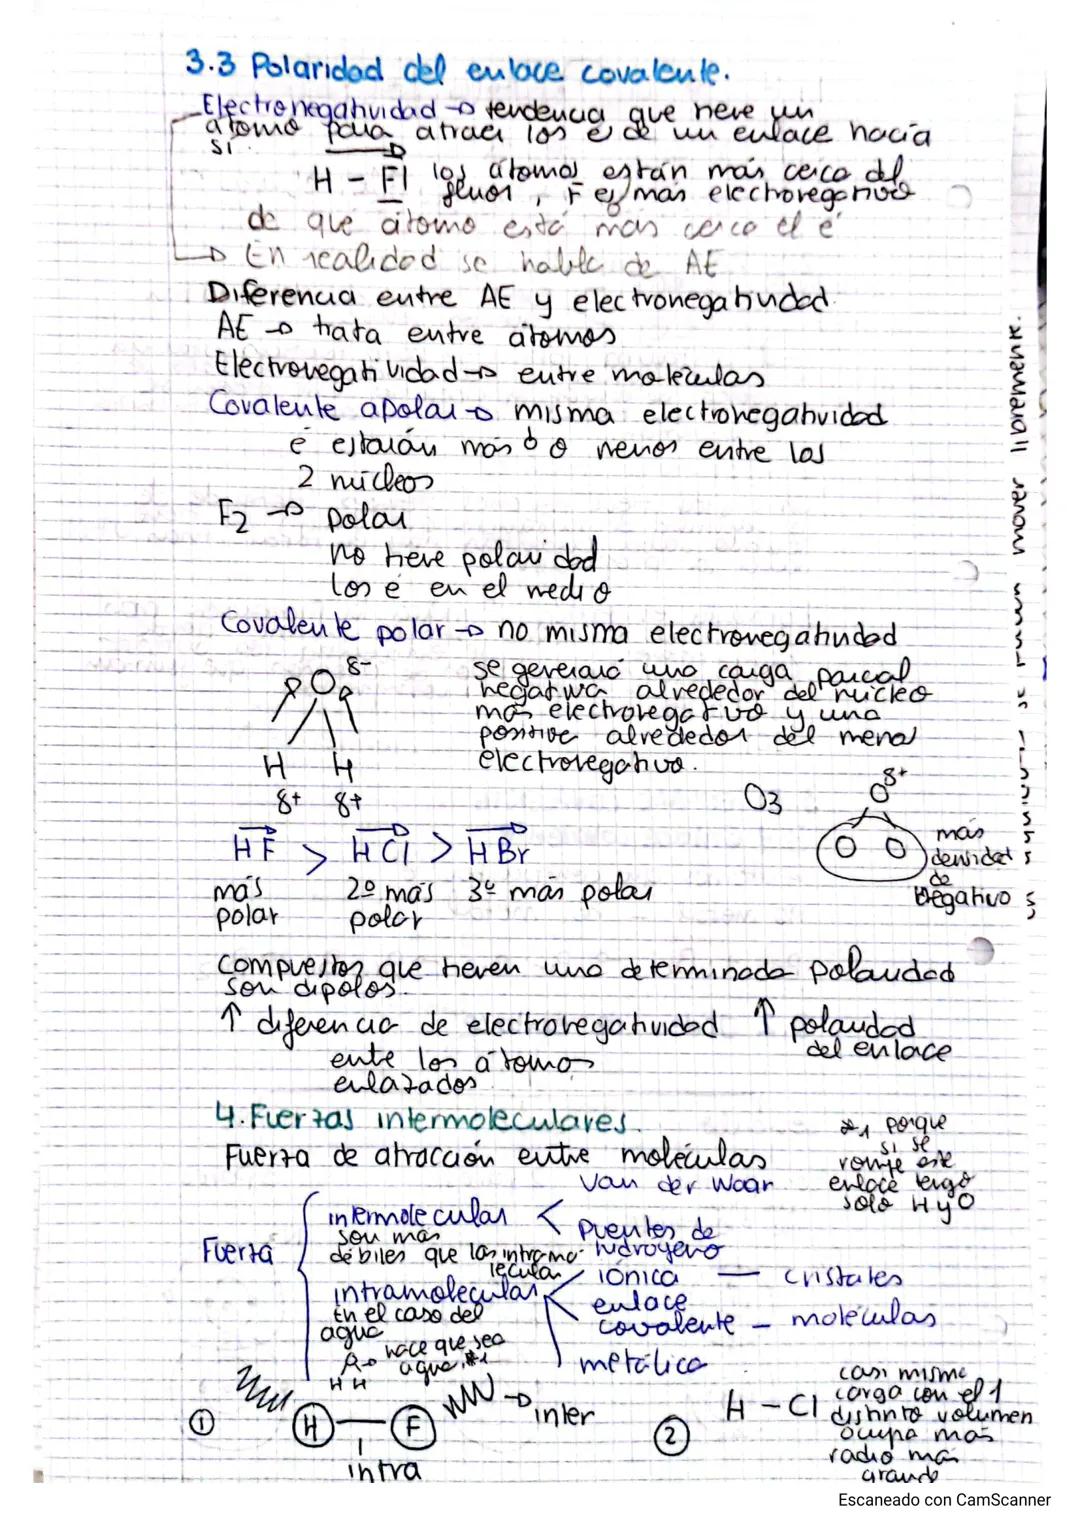 3.3 Polaridad del enlace covalente.
Electronegatividad → tendencia que tiene un
átomo para atraer los é de un enlace hacia
sí.
H - Fl los átomos están más cerca del
fluor, F es más electronegativo
de que átomo está más cerca el é
→ En realidad se habla de AE
Diferencia entre AE y electronegatividad.
AE → trata entre átomos
Electronegatividad → entre moléculas
Covalente apolar → misma electronegatividad
é estarán más o menos entre los
2 núcleos
F2 → polar
no tiene polaridad
los é en el medio
Covalente polar → no misma electronegatividad
O δ-
H H
δ+ δ+
se generará una carga parcial
negativa alrededor del núcleo
más electronegativo y una
positiva alrededor del menos
electronegativo.
O3
O δ+
O O
más
densidad
de
negativo
HF > HCl > HBr
más polar
2º más polar
3º más polar
Compuestos que tienen una determinada polaridad
son dipolos.
↑ diferencia de electronegatividad ↑ polaridad
ente los átomos del enlace
enlazados
4. Fuerzas intermoleculares.
Fuerza de atracción entre moléculas
*1 porque
si se
rompe este
enlace tengo
solo H y O
Fuerza
intermolecular < Van der Waar
puentes de
hidrógeno
son más
débiles que las intramo-
lecular
intramolecular
iónica — cristales
enlace
covalente - moléculas
metálica
En el caso del
agua
hace que sea
agua *1
H H
① H — F → inter
intra
② H - Cl
casi misma
carga con el 1
distinto volumen
ocupa más
radio más
grande
mover libremente.
Escaneado con CamScanner